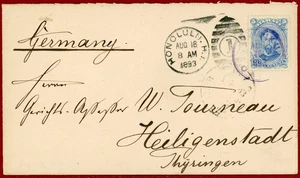 Germany.
HONOLULU, H.I.
AUG 18
8 AM
1893
1
Herrn
Gerichts-Assessor W. Tourneau
Heiligenstadt
Thüringen